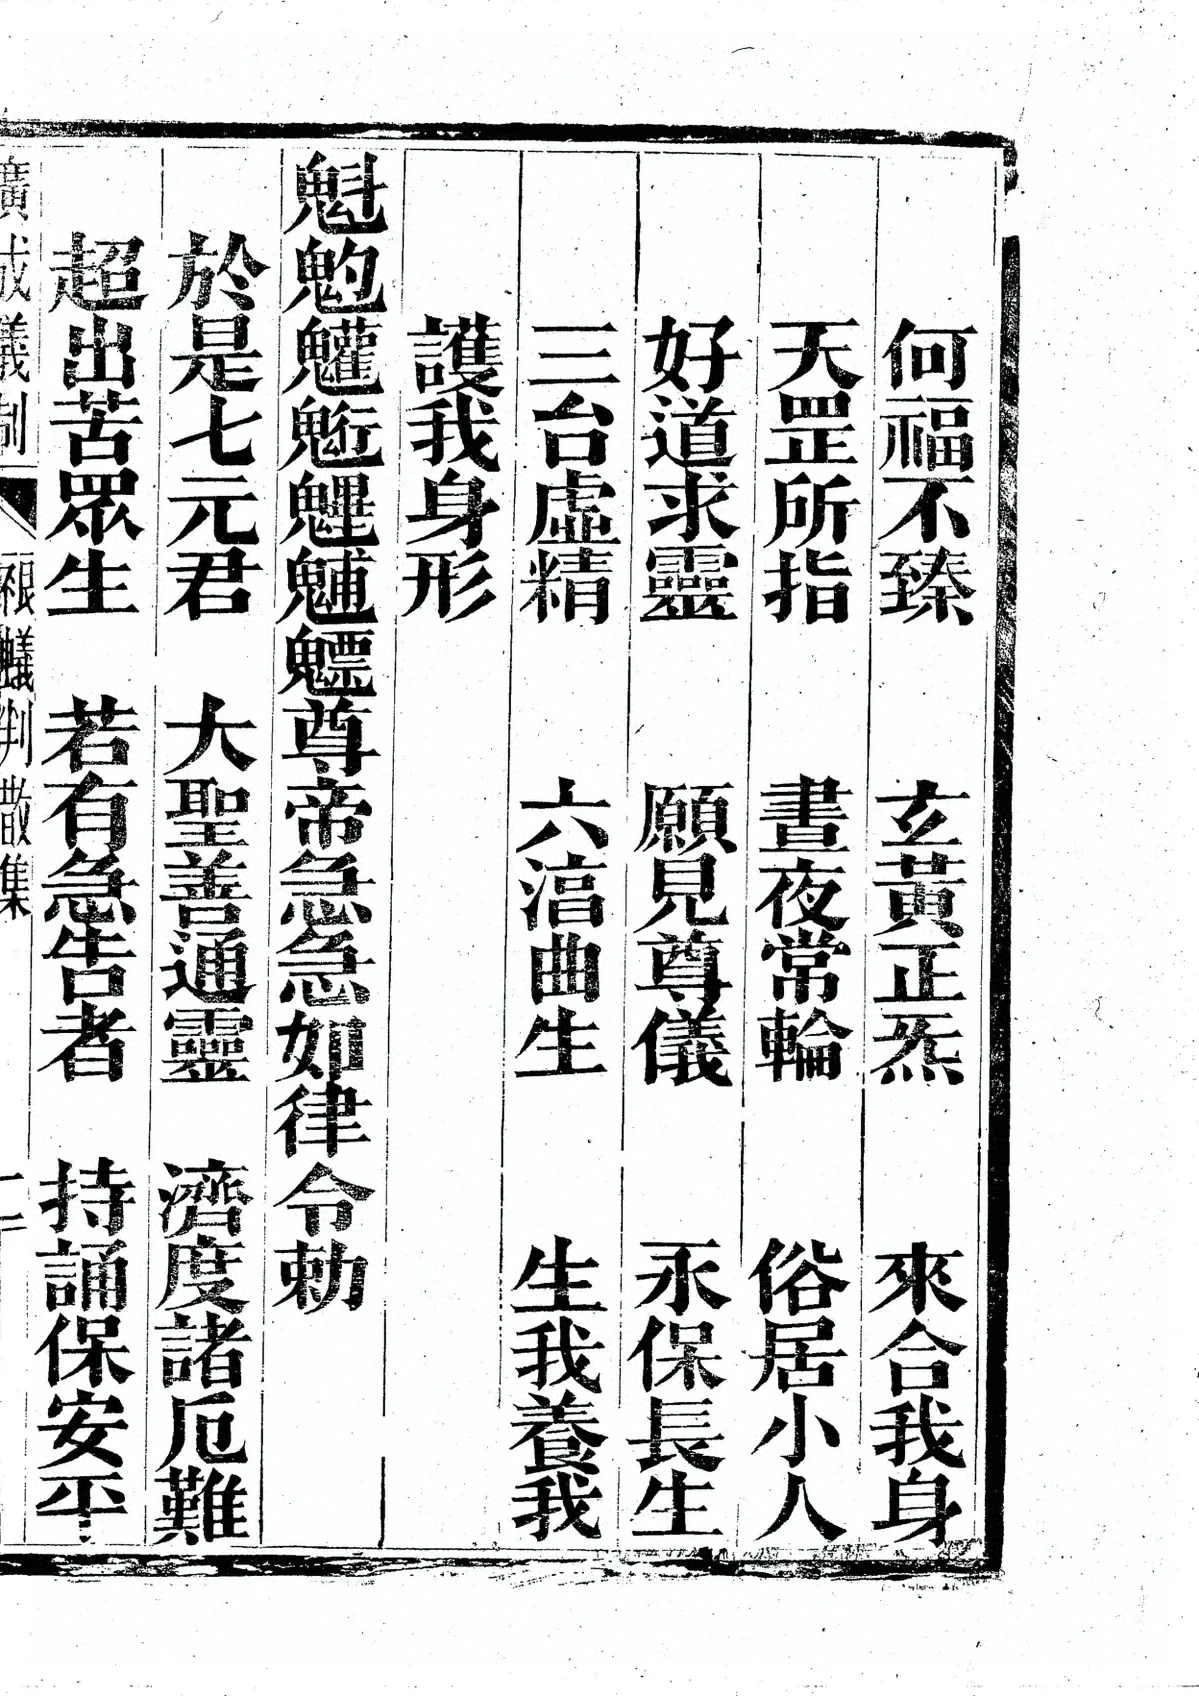 何福不臻　玄黃正炁　來合我身
天罡所指　晝夜常輪　俗居小人
好道求靈　願見尊儀　永保長生
三台虛精　六淳曲生　生我養我
護我身形
魁䰢䰡魓䰣尊帝急急如律令勅
於是七元君　大聖善通靈　濟度諸厄難
超出苦眾生　若有急告者　持誦保安平
廣成儀制